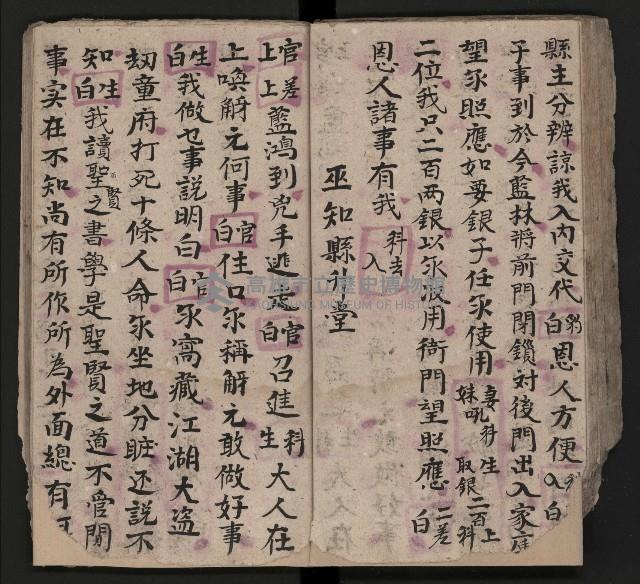 縣主分辨諒我入內交代白 豹恩人方便 入 豹白
子事到於今藍林將前門閉鎖对後門出入家庭
望尔照應如要銀子任尔使用 妻妹吼 科 生 取銀二百上 科
二位我只二百两銀以尔 用衙門望照應 二差白
恩人諸事有我 科去入
巫知縣升堂
上官上差藍鴻到兇手逃走 官白召進 科生大人在
上喚觧元何事 官白住口尔稱觧元敢做好事
生白我做乜事説明白 官白尔窩藏江湖大盗
刼童府打死十條人命尔坐地分賍还説不
知 生白我讀聖賢之書學是聖賢之道不管閒
事实在不知尚有所作所為外面總有
高雄市立歷史博物館
KAOHSIUNG MUSEUM OF HISTORY